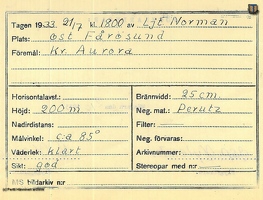 Tagen 1933. 21/7 kl. 1800 av Ljt Norman
Plats: ost Fårösund
Föremål: Kr. Aurora
Horisontalavst.: Brännvidd: 25 cm.
Höjd: 200 m Neg. mat.: Perutz
Nadirdistans: Filter:
Målvinkel: c:a 85° Neg. förvaras:
Väderlek: klart Arkivnummer:
Sikt: god Stereopar med n:r
MS bildarkiv n:r